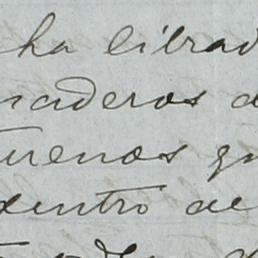 ha librad
naderos d
turenos qu
dentro de